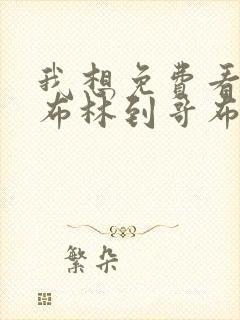 我想免费看
布林到哥布
繁朵